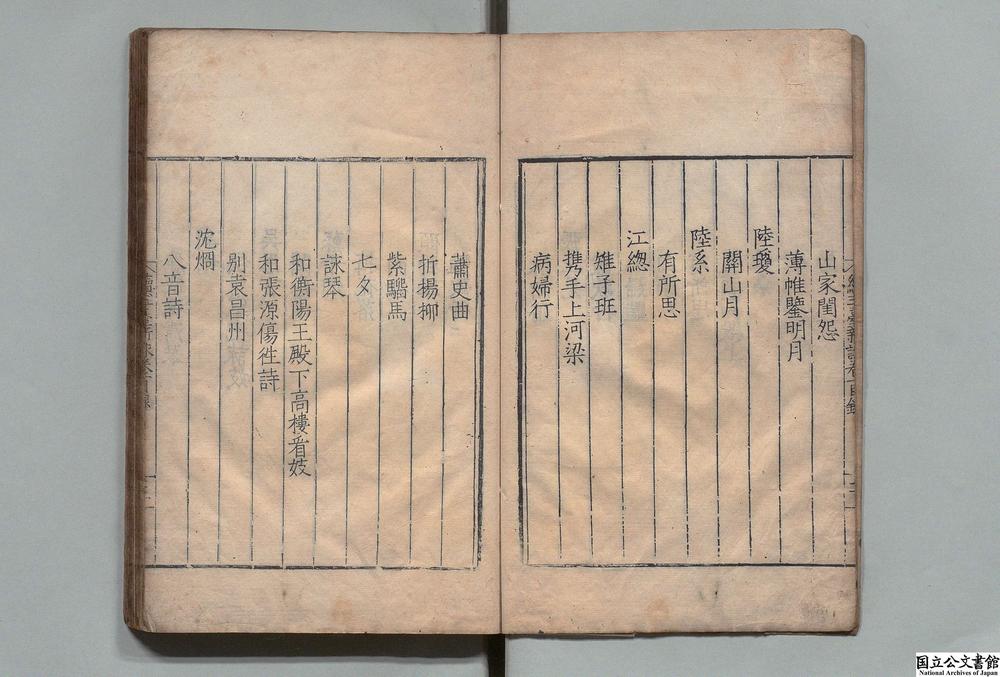 山家閨怨
薄帷鑒明月
陸瓊
關山月
陸系
有所思
江總
雉子班
携手上河梁
病婦行
蕭史曲
折揚柳
紫騮馬
七夕
詠琴
和衡陽王殿下高樓看妓
和張源傷往詩
別袁昌州
沈烱
八音詩
国立公文書館
National Archives of Japan